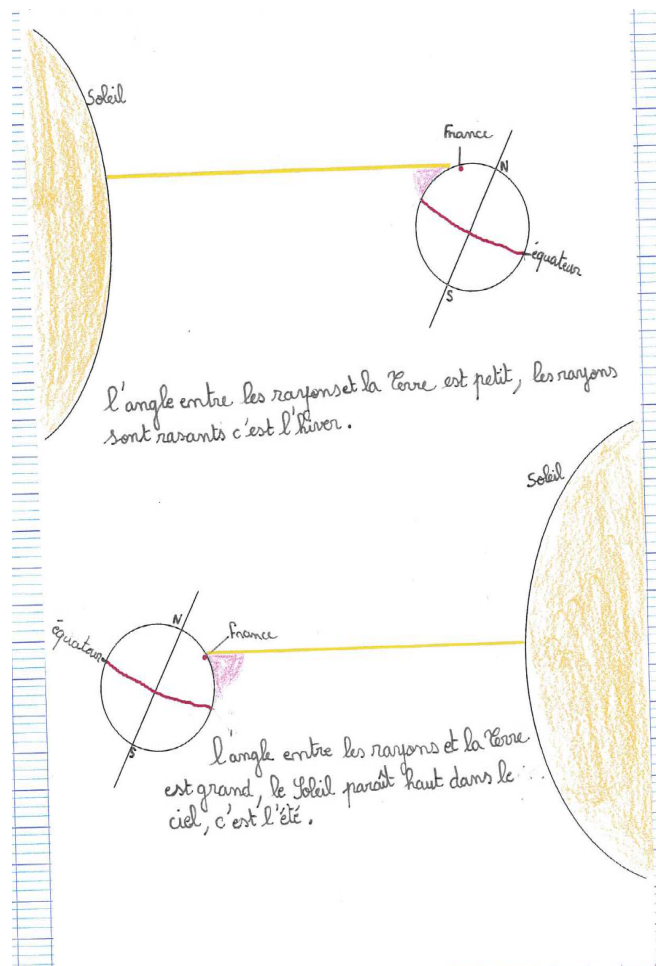 Soleil
France
N
équateur
S
l'angle entre les rayons et la Terre est petit, les rayons
sont rasants c'est l'hiver.
Soleil
N
équateur
France
S
l'angle entre les rayons et la Terre
est grand, le Soleil paraît haut dans le
ciel, c'est l'été.